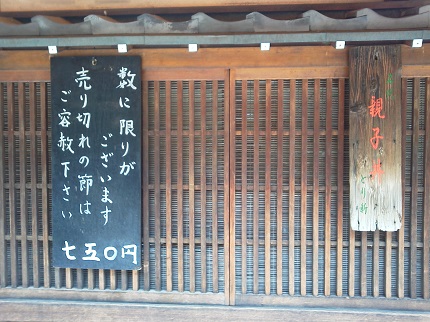 数に限りが
ございます
売り切れの節は
ご容赦下さい
七五〇円
親子